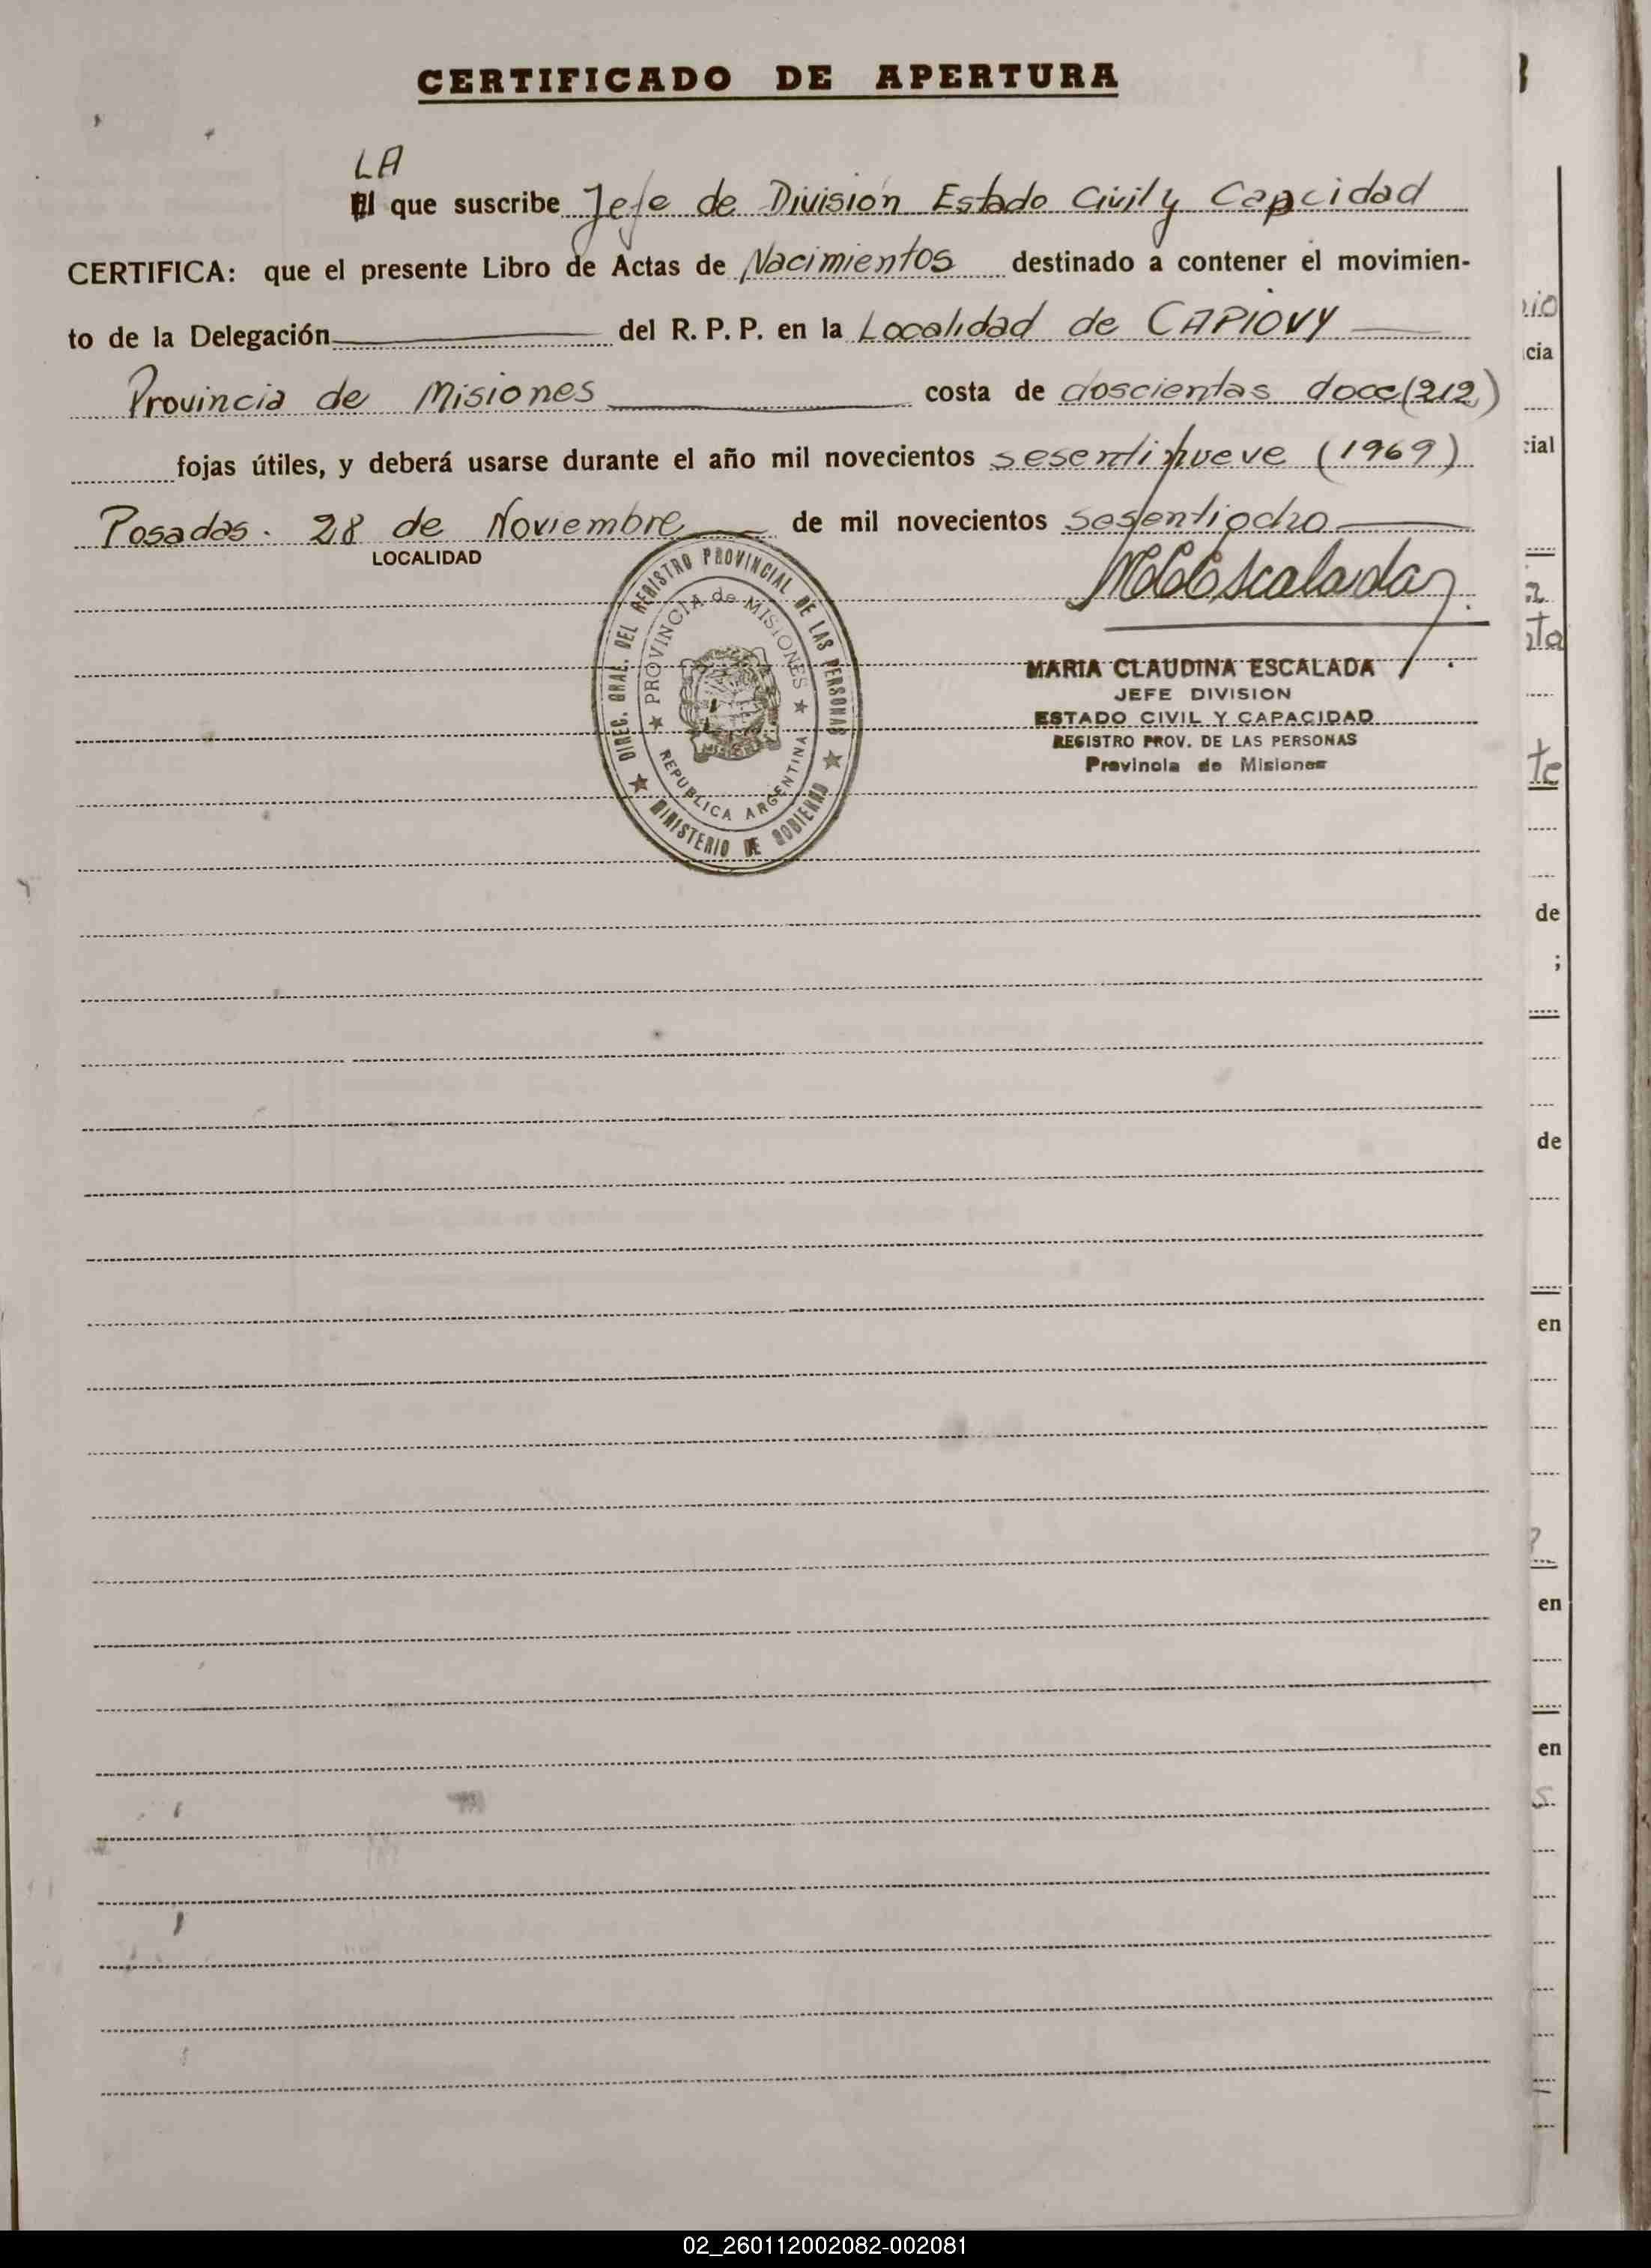 CERTIFICADO DE APERTURA
LA
El que suscribe Jefe de División Estado Civil y Capcidad
CERTIFICA: que el presente Libro de Actas de Nacimientos destinado a contener el movimien-
to de la Delegación del R. P. P. en la Localidad de CAPIOVY
Provincia de Misiones costa de doscientas doce (212)
fojas útiles, y deberá usarse durante el año mil novecientos sesentinueve (1969)
Posadas. 28 de Noviembre de mil novecientos sesentiocho
LOCALIDAD
MCEscalada
DIREC. GRAL. DEL REGISTRO PROVINCIAL DE LAS PERSONAS
MINISTERIO DE GOBIERNO
PROVINCIA de MISIONES
REPUBLICA ARGENTINA
MISIONES
MARIA CLAUDINA ESCALADA
JEFE DIVISION
ESTADO CIVIL Y CAPACIDAD
REGISTRO PROV. DE LAS PERSONAS
Provincia de Misiones
cia
cial
te
de
;
de
en
en
en
02_260112002082-002081